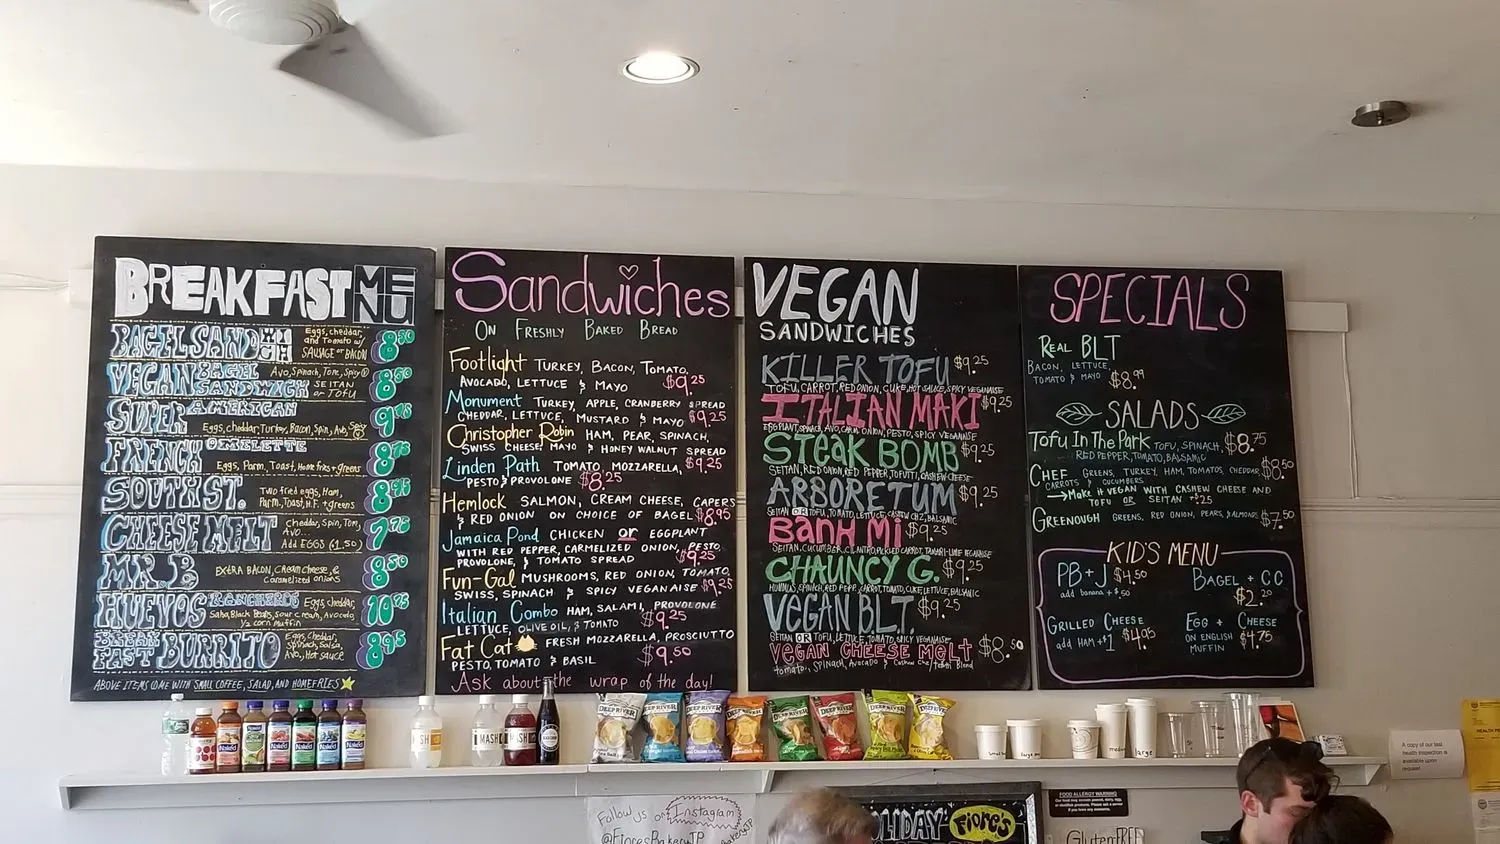 BREAKFAST MENU
BAGEL SANDWICH Eggs, cheddar, and Tomato w/ SAUSAGE or BACON 8.50
VEGAN BAGEL SANDWICH Avo, Spinach, Tom, Spicy SEITAN or TOFU 8.50
SUPER AMERICAN 9.75
Eggs, cheddar, Turkey, Bacon, Spin, Avo, Spicy
FRENCH OMELETTE 8.75
Eggs, Parm, Toast, Home fries + greens
SOUTH ST. Two fried eggs, Ham, Parm, Toast, H.F. + greens 8.95
CHEESE MELT Cheddar, Spin, Tom, Avo.. Add EGGS ($1.50) 7.75
MR. B EXTRA BACON, CREAM CHEESE, & Caramelized onions 8.50
HUEVOS RANCHEROS Eggs, cheddar, Salsa, Black Beans, sour cream, Avocado, 1/2 corn muffin 10.75
BREAKFAST BURRITO Eggs, Cheddar, Spinach, Salsa, Avo., Hot sauce 8.95
ABOVE ITEMS COME WITH SMALL COFFEE, SALAD, AND HOMEFRIES
Sandwiches
ON FRESHLY BAKED BREAD
Footlight TURKEY, BACON, TOMATO,
AVOCADO, LETTUCE & MAYO $9.25
Monument TURKEY, APPLE, CRANBERRY SPREAD
CHEDDAR, LETTUCE, MUSTARD & MAYO $9.25
Christopher Robin HAM, PEAR, SPINACH,
SWISS CHEESE, MAYO & HONEY WALNUT SPREAD
Linden Path TOMATO, MOZZARELLA, $9.25
PESTO & PROVOLONE $8.25
Hemlock SALMON, CREAM CHEESE, CAPERS
& RED ONION ON CHOICE OF BAGEL $8.95
Jamaica Pond CHICKEN or EGGPLANT
WITH RED PEPPER, CARMELIZED ONION, PESTO,
PROVOLONE, & TOMATO SPREAD $9.25
Fun-Gal MUSHROOMS, RED ONION, TOMATO,
SWISS, SPINACH & SPICY VEGANAISE $9.25
Italian Combo HAM, SALAMI, PROVOLONE
LETTUCE, OLIVE OIL, & TOMATO $9.25
Fat Cat FRESH MOZZARELLA, PROSCIUTTO
PESTO, TOMATO & BASIL $9.50
Ask about the wrap of the day!
VEGAN
SANDWICHES
KILLER TOFU $9.25
TOFU, CARROT, RED ONION, CUKE, HOT SAUCE, SPICY VEGANAISE
ITALIAN MAKI $9.25
EGGPLANT, SPINACH, AVO, CARM. ONION, PESTO, SPICY VEGANAISE
STEAK BOMB $9.25
SEITAN, RED ONION, RED PEPPER, TOFUTTI, CASHEW CHEESE
ARBORETUM $9.25
SEITAN OR TOFU, TOMATO, LETTUCE, CASHEW CHZ, BALSAMIC
BANH MI $9.25
SEITAN, CUCUMBER, CILANTRO, PICKLED CARROT, TAMARI-LIME VEGANAISE
CHAUNCY G. $9.25
HUMMUS, SPINACH, RED PEPP, CARROT, TOMATO, CUKE, LETTUCE, BALSAMIC
VEGAN BLT. $9.25
SEITAN OR TOFU, LETTUCE, TOMATO, SPICY VEGANAISE
VEGAN CHEESE MELT $8.50
tomato, SPINACH, Avocado & Cashew Chz/tofutti Blend
SPECIALS
REAL BLT
BACON, LETTUCE,
TOMATO & MAYO $8.99
SALADS
TOFU IN THE PARK TOFU, SPINACH, $8.75
RED PEPPER, TOMATO, BALSAMIC
CHEF GREENS, TURKEY, HAM, TOMATOS, CHEDDAR, $8.50
CARROTS & CUCUMBERS
→ Make it VEGAN WITH CASHEW CHEESE AND
TOFU OR SEITAN +.25
GREENOUGH GREENS, RED ONION, PEARS, & ALMONDS $7.50
KID'S MENU
PB+J $4.50
add banana + $.50
BAGEL + CC
$2.20
GRILLED CHEESE
add HAM +$1 $4.95
EGG + CHEESE
ON ENGLISH MUFFIN $4.75
Naked
Naked
Naked
Naked
Naked
Naked
MASH
DEEP RIVER
DEEP RIVER
DEEP RIVER
DEEP RIVER
DEEP RIVER
DEEP RIVER
DEEP RIVER
DEEP RIVER
large
large
A copy of our last
health inspection
is available upon
request
FOOD ALLERGY WARNING
Follow us on Instagram
@FIORESBAKERYJP
HOLIDAY FIORE'S
Gluten FREE